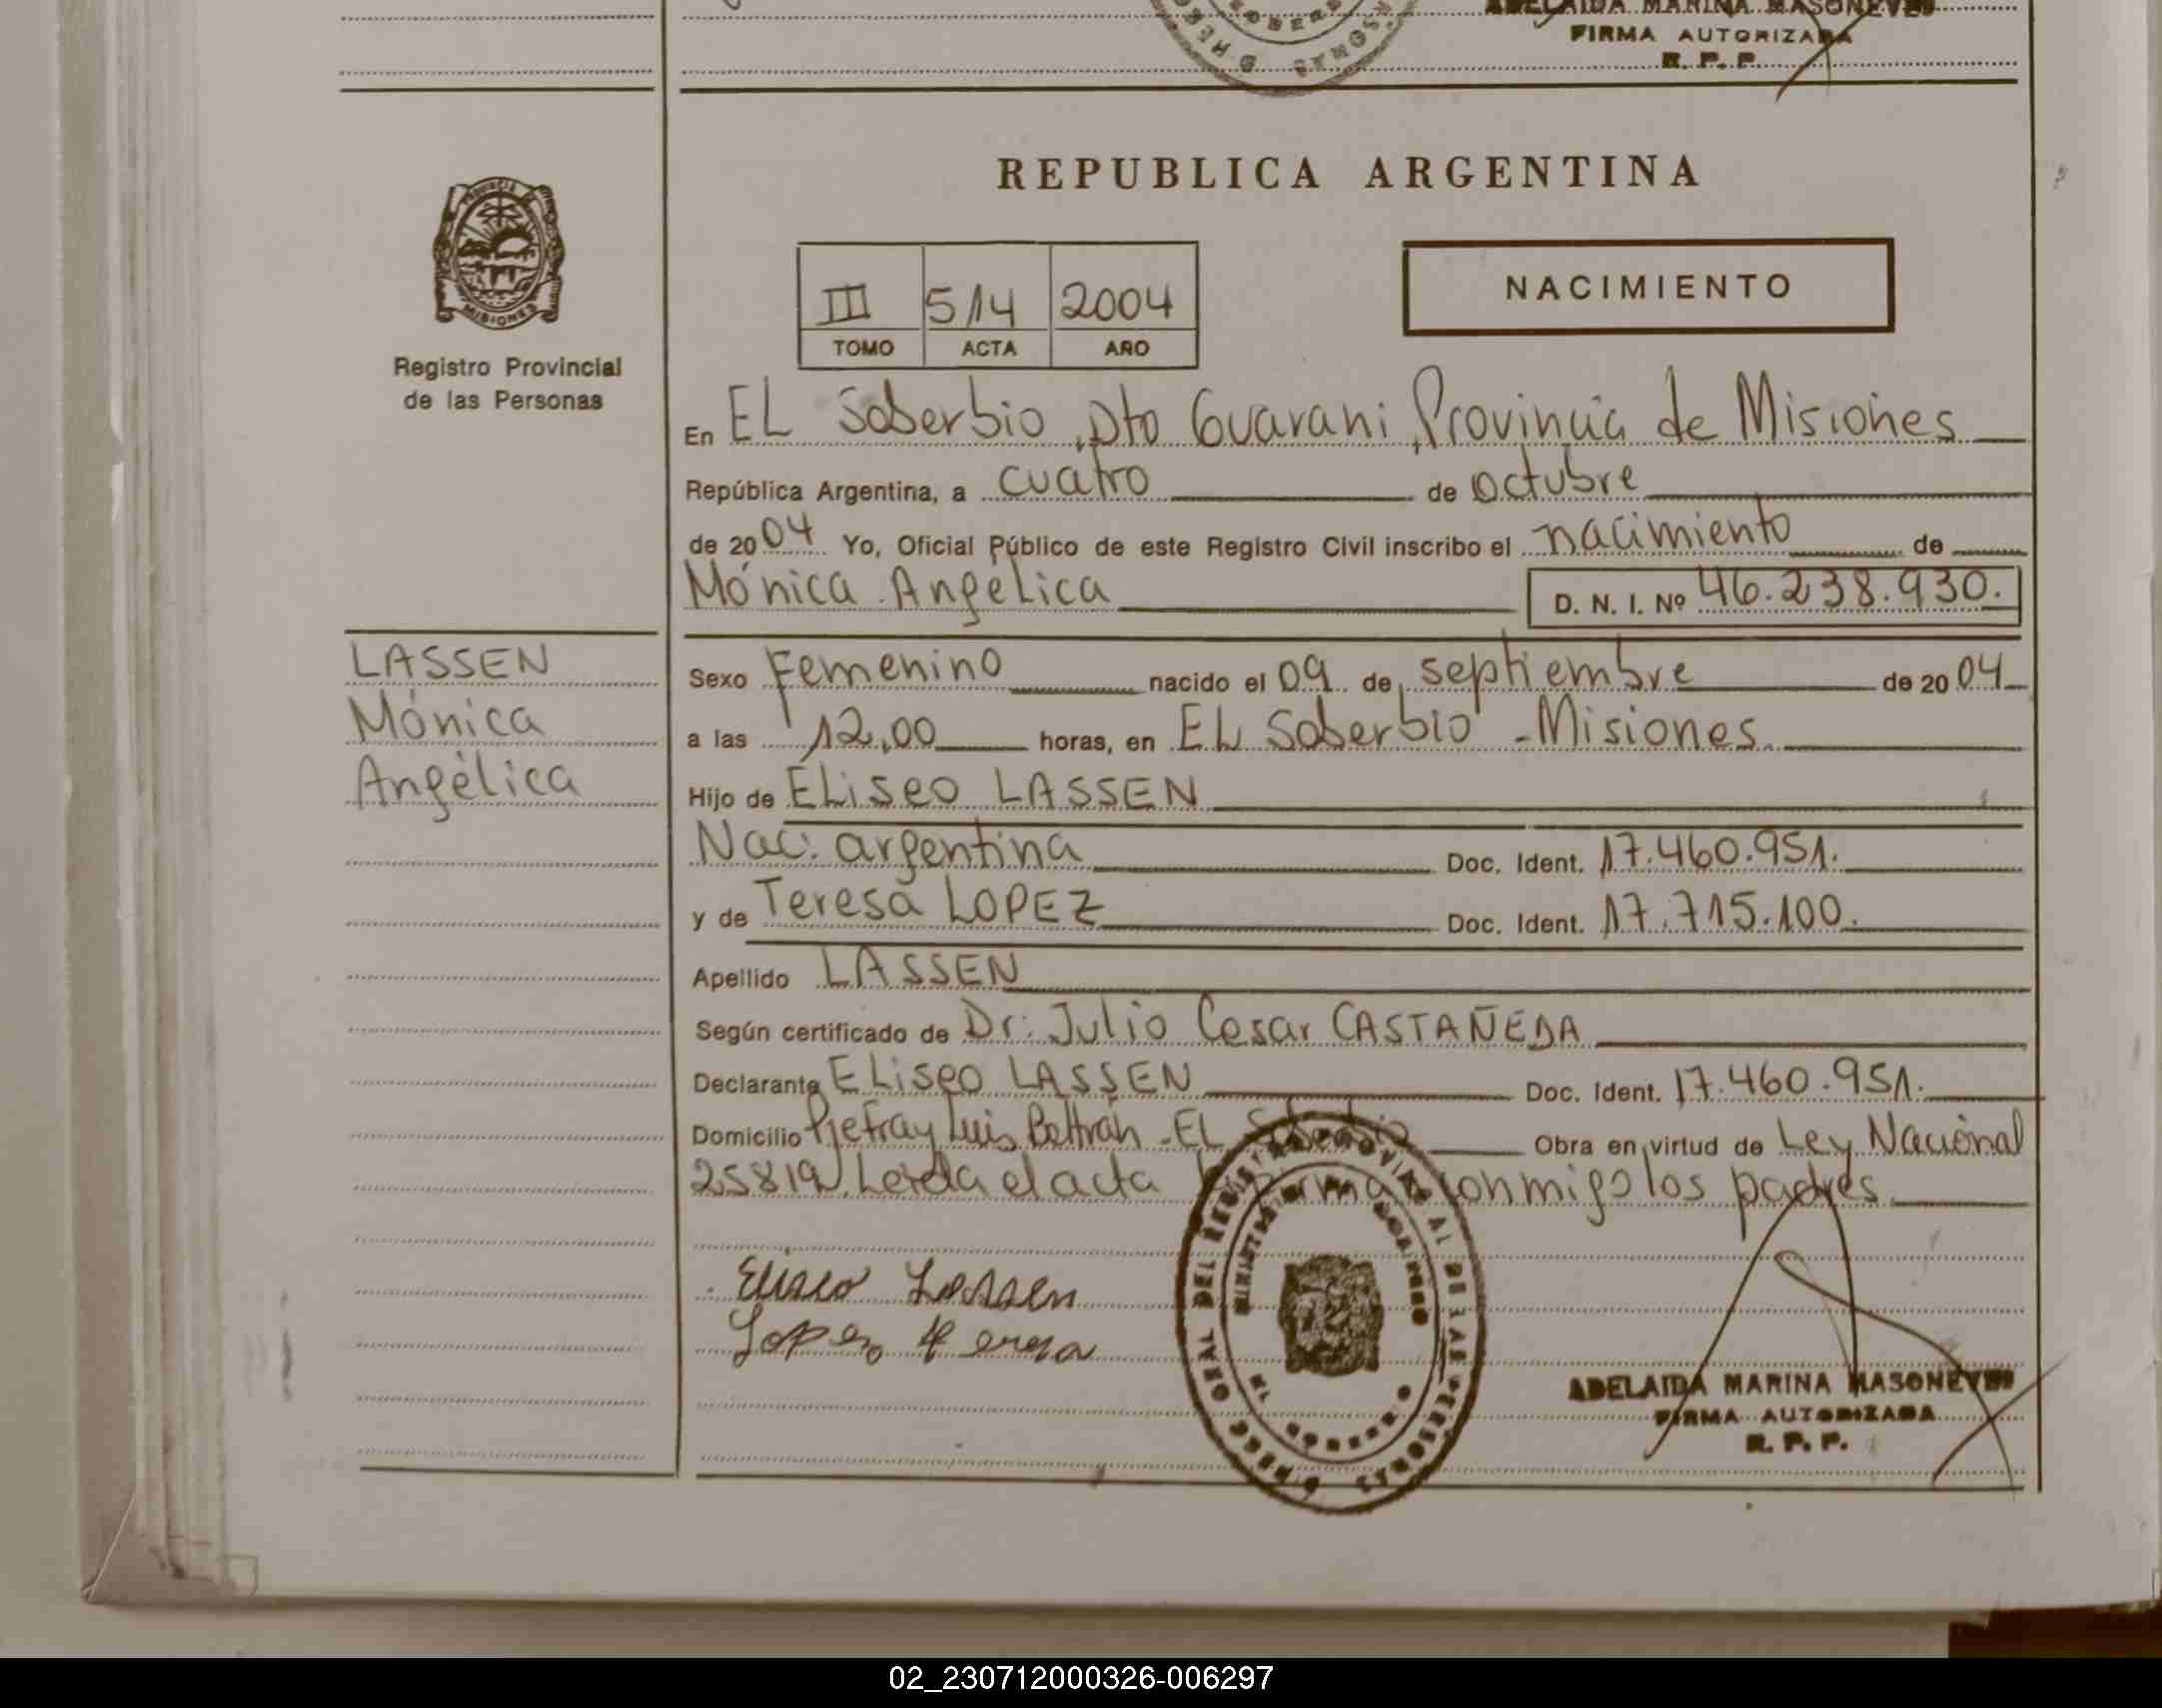 ADELAIDA MARINA MASONEVES
FIRMA AUTORIZADA
R. P. P.
PROVINCIA
MISIONES
Registro Provincial
de las Personas
REPUBLICA ARGENTINA
III 514 2004
TOMO ACTA AÑO
NACIMIENTO
En EL Soberbio, Dto Guarani, Provincia de Misiones
República Argentina, a cuatro de octubre
de 2004 Yo, Oficial Público de este Registro Civil inscribo el nacimiento de
Mónica Angélica D. N. I. Nº 46.238.930.
LASSEN
Mónica
Angélica
Sexo Femenino nacido el 09 de septiembre de 2004
a las 12,00 horas, en EL Soberbio - Misiones.
Hijo de ELiseo LASSEN
Nac. argentina Doc. Ident. 17.460.951.
y de Teresa LOPEZ Doc. Ident. 17.715.100.
Apellido LASSEN
Según certificado de Dr. Julio Cesar CASTAÑEDA
Declarante ELiseo LASSEN Doc. Ident. 17.460.951.
Domicilio Pje Fray Luis Beltrán - EL Soberbio Obra en virtud de Ley Nacional
25819. Leída el acta la firman conmigo los padres
Eliseo Lassen
Lopez Teresa
ADELAIDA MARINA MASONEVES
FIRMA AUTORIZADA
R. P. P.
02_230712000326-006297